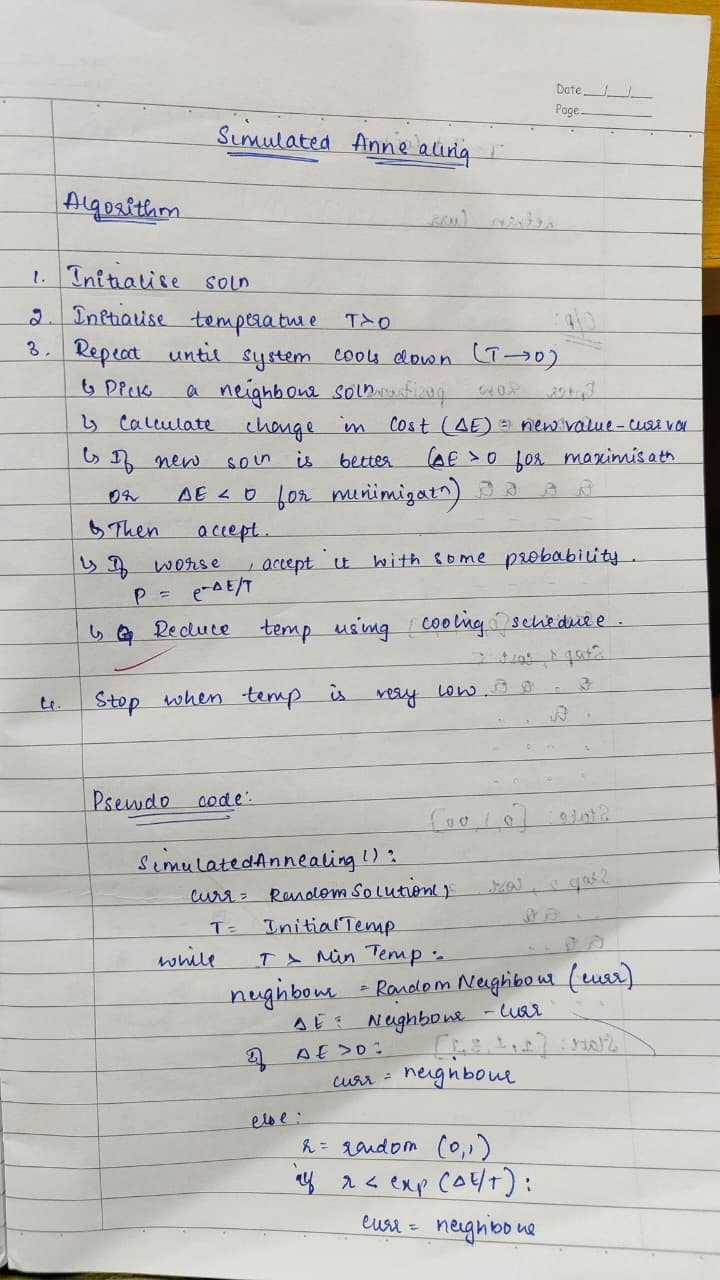 Date __/__/__
Page ______
Simulated Annealing
Algorithm
1. Initialise soln
2. Initialise temperature T>0
3. Repeat until system cools down (T→0)
↳ Pick a neighbour soln
↳ Calculate change in cost (ΔE) = new value - curr val
↳ If new soln is better (ΔE > 0 for maximisatn
or ΔE < 0 for minimizatn)
↳ Then accept.
↳ If worse, accept it with some probability.
P = e^-ΔE/T
↳ Reduce temp using cooling schedule.
4. Stop when temp is very low.
Pseudo code:
Simulated Annealing():
curr = Random Solution()
T = Initial Temp
while T > Min Temp:
neighbour = Random Neighbour (curr)
ΔE = Neighbour - curr
If ΔE > 0:
curr = neighbour
else:
r = random (0,1)
if r < exp (ΔE/T):
curr = neighbour